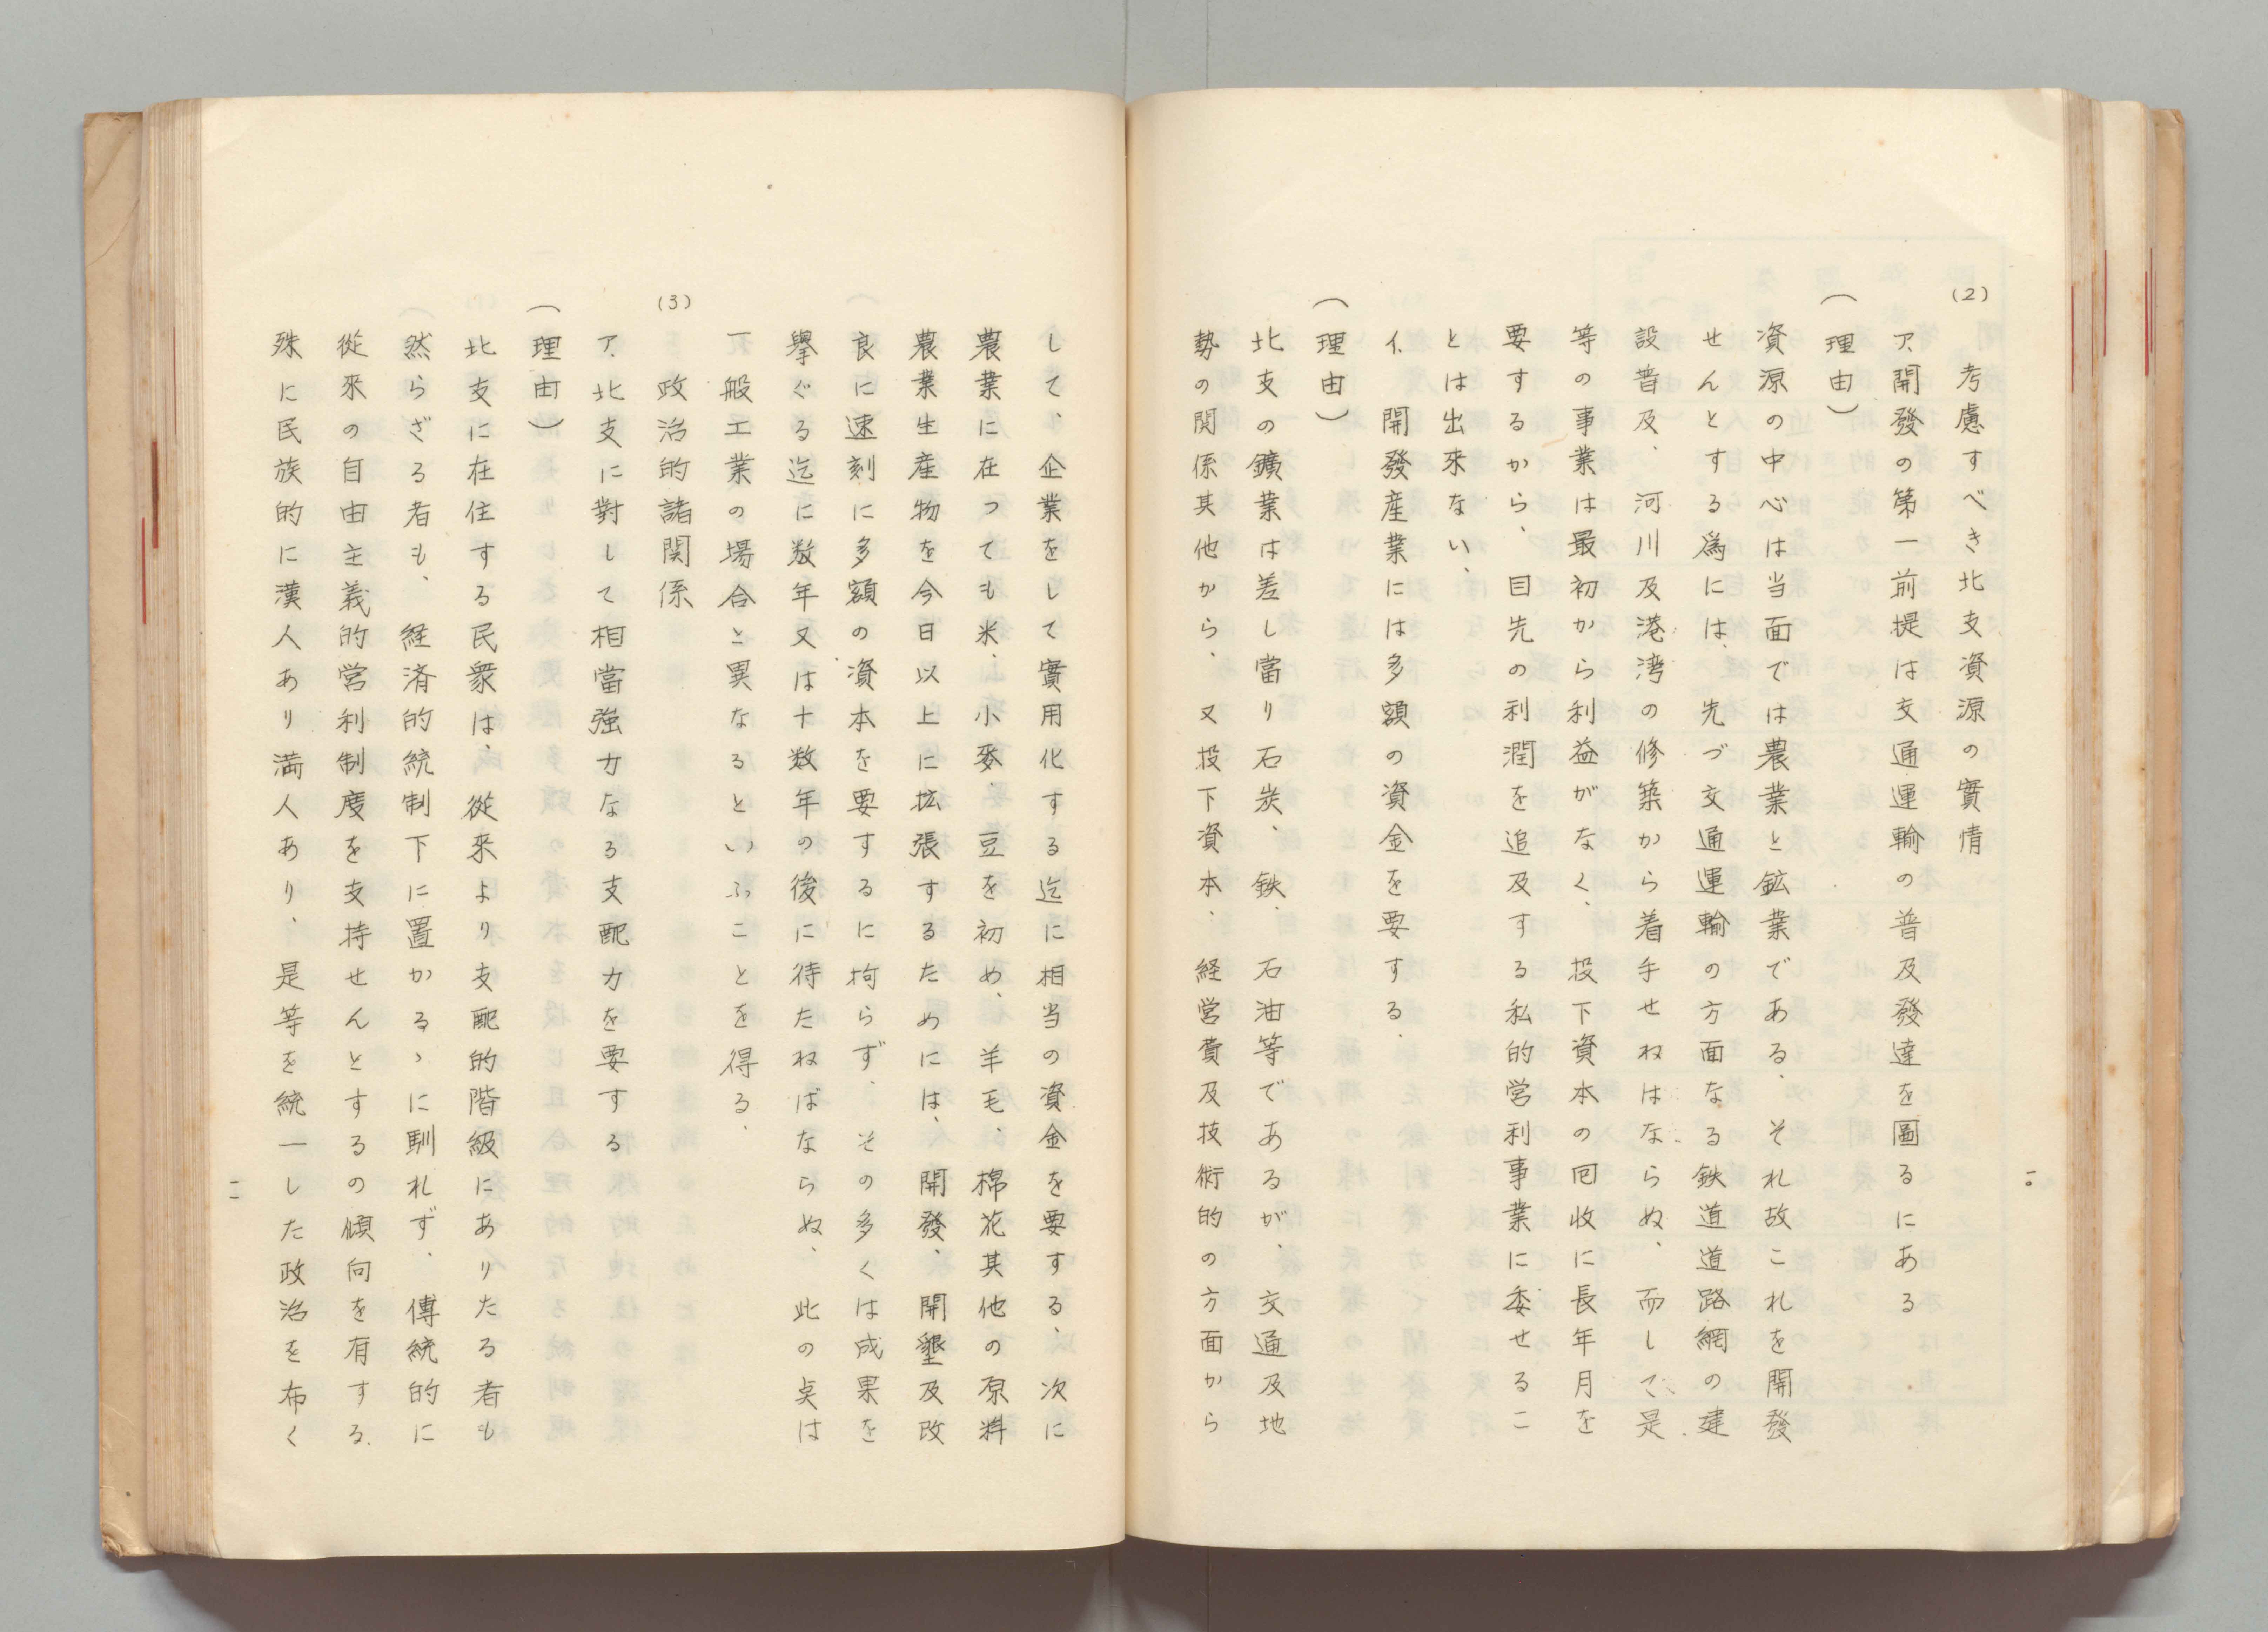 一〇
(2) 考慮すべき北支資源の實情
ア、開發の第一前提は交通運輸の普及發達を圖るにある
(理由)
資源の中心は当面では農業と鉱業である、それ故これを開發
せんとする爲には、先づ交通運輸の方面なる鉄道道路網の建
設普及、河川及港湾の修築から着手せねばならぬ、而して是
等の事業は最初から利益がなく、投下資本の回收に長年月を
要するから、目先の利潤を追及する私的営利事業に委せるこ
とは出来ない、
イ、開發産業には多額の資金を要する、
(理由)
北支の鑛業は差し當り石炭、鉄、石油等であるが、交通及地
勢の関係其他から、又投下資本、経営費及技術的の方面から
して、企業をして實用化する迄に相当の資金を要する、次に
農業に在つても米、小麥、豆を初め、羊毛、棉花其他の原料
農業生産物を今日以上に拡張するためには、開發、開墾及改
良に速刻に多額の資本を要するに拘らず、その多くは成果を
擧ぐる迄に数年又は十数年の後に待たねばならぬ、此の奌は
一般工業の場合と異なるといふことを得る、
(3) 政治的諸関係
ア、北支に對して相當強力なる支配力を要する
(理由)
北支に在住する民衆は、從来より支配的階級にありたる者も
然らざる者も、経済的統制下に置かるゝに馴れず、傳統的に
從來の自由主義的営利制度を支持せんとするの傾向を有する、
殊に民族的に漢人あり満人あり、是等を統一した政治を布く
一一